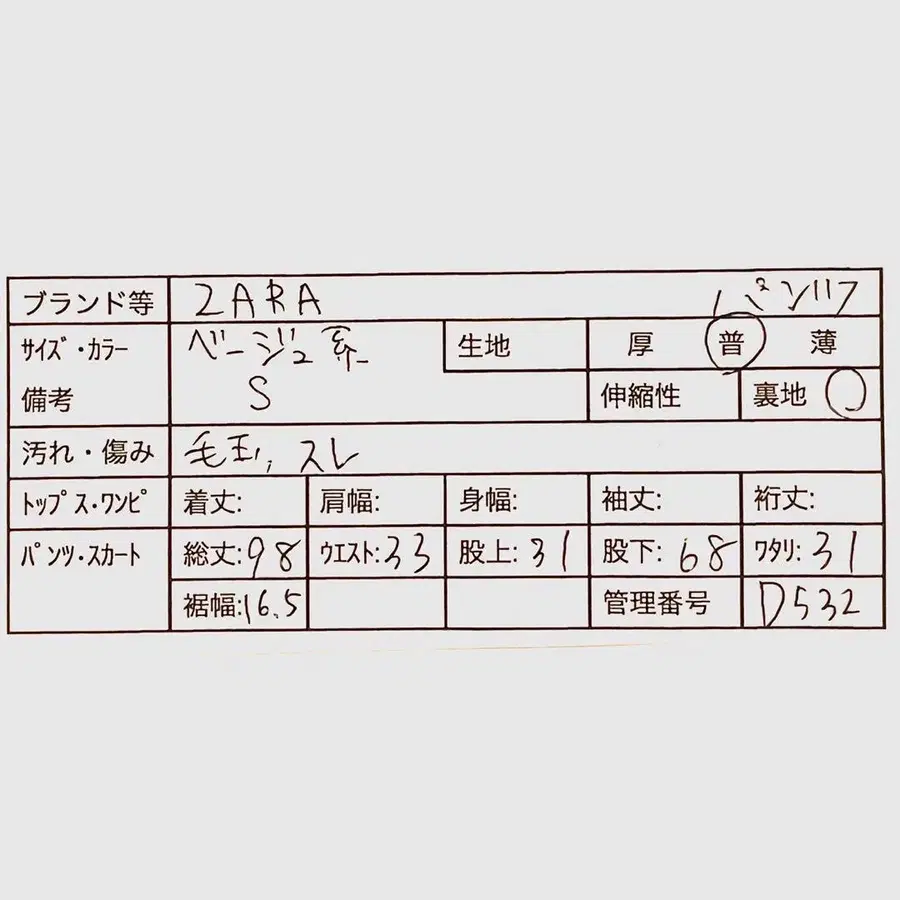 ブランド等 ZARA パンツ
サイズ・カラー ベージュ系 生地 厚 普 薄
備考 S 伸縮性 裏地 ○
汚れ・傷み 毛玉, スレ
トップス・ワンピ 着丈: 肩幅: 身幅: 袖丈: 裄丈:
パンツ・スカート 総丈:98 ウエスト:33 股上:31 股下:68 ワタリ:31
裾幅:16.5 管理番号 D532